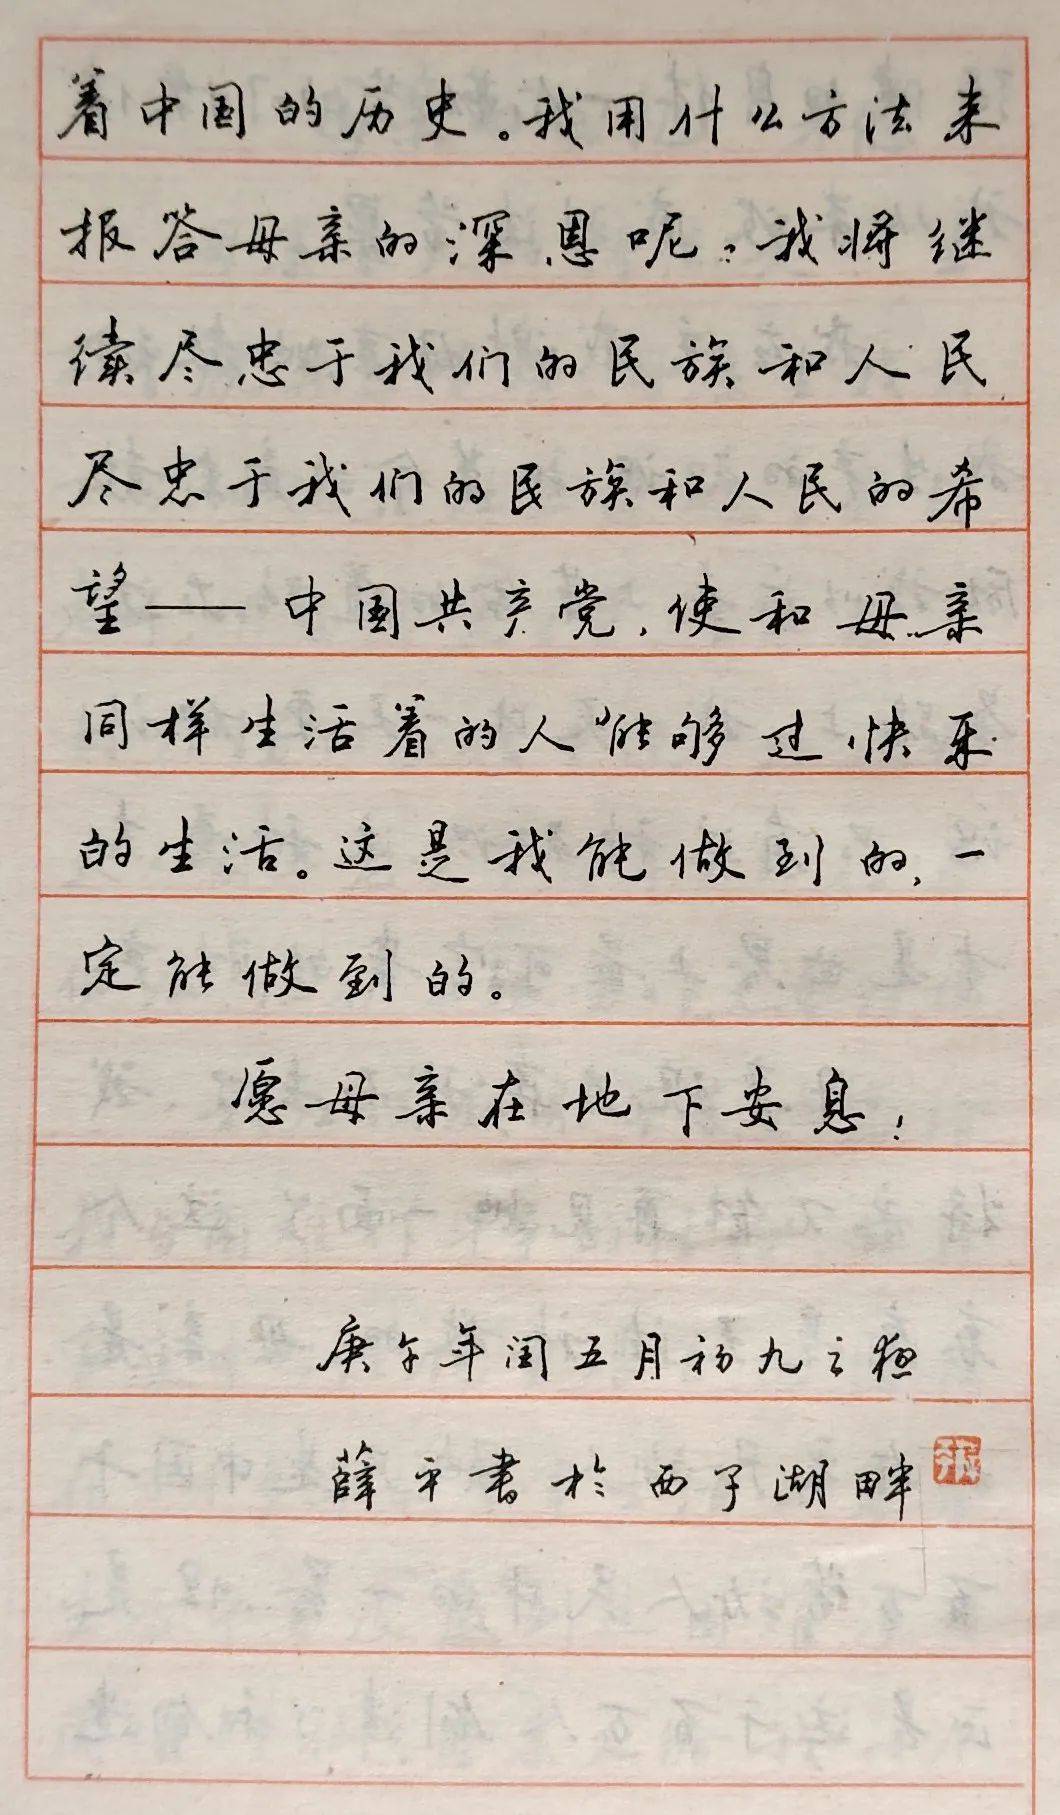 着中国的历史。我用什么方法来
报答母亲的深恩呢？我将继
续尽忠于我们的民族和人民
尽忠于我们的民族和人民的希
望——中国共产党，使和母亲
同样生活着的人能够过快乐
的生活。这是我能做到的，一
定能做到的。
愿母亲在地下安息！
庚午年闰五月初九之夜
薛平书于西子湖畔